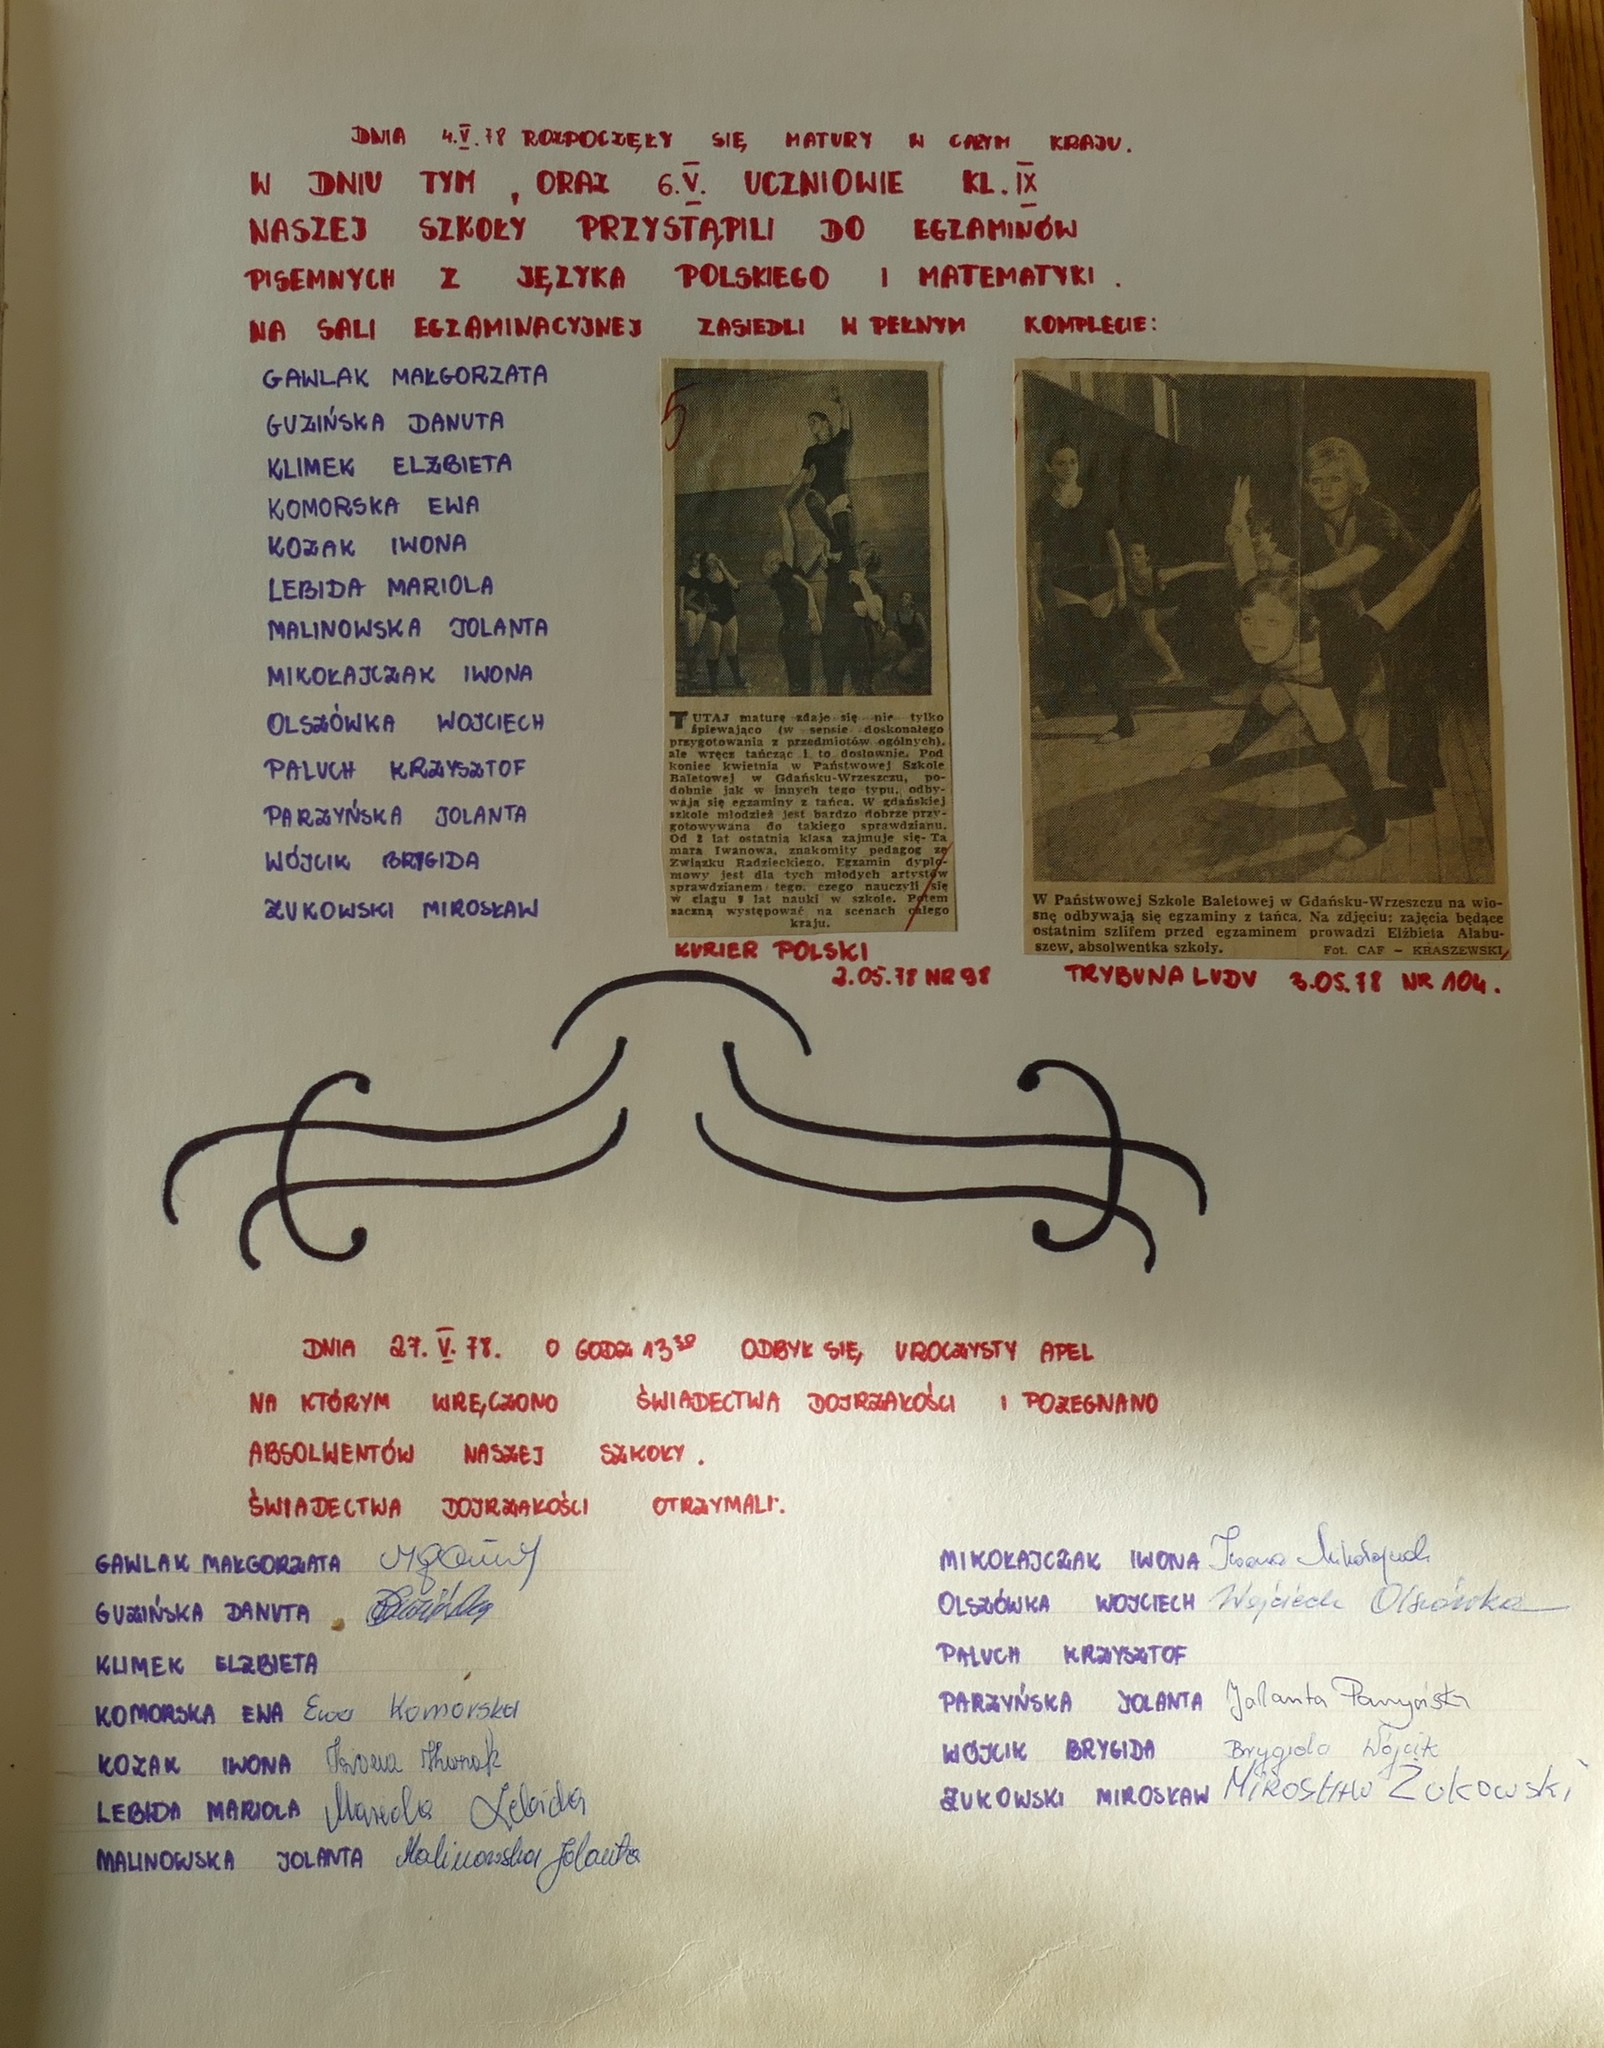 DNIA 4.V.78 ROZPOCZĘŁY SIĘ MATURY W CAŁYM KRAJU.
W DNIU TYM, ORAZ 6.V. UCZNIOWIE KL. IX
NASZEJ SZKOŁY PRZYSTĄPILI DO EGZAMINÓW
PISEMNYCH Z JĘZYKA POLSKIEGO I MATEMATYKI.
NA SALI EGZAMINACYJNEJ ZASIEDLI W PEŁNYM KOMPLECIE:
GAWLAK MAŁGORZATA
GUZIŃSKA DANUTA
KLIMEK ELŻBIETA
KOMORSKA EWA
KOZAK IWONA
LEBIDA MARIOLA
MALINOWSKA JOLANTA
MIKOŁAJCZAK IWONA
OLSZÓWKA WOJCIECH
PALUCH KRZYSZTOF
PARZYŃSKA JOLANTA
WÓJCIK BRYGIDA
ŻUKOWSKI MIROSŁAW
5
TUTAJ maturę zdaje się nie tylko
śpiewająco (w sensie doskonałego
przygotowania z przedmiotów ogólnych),
ale wręcz tańcząc i to dosłownie. Pod
koniec kwietnia w Państwowej Szkole
Baletowej w Gdańsku-Wrzeszczu, po-
dobnie jak w innych tego typu, odby-
wają się egzaminy z tańca. W gdańskiej
szkole młodzież jest bardzo dobrze przy-
gotowywana do takiego sprawdzianu.
Od 2 lat ostatnią klasą zajmuje się Ta
mara Iwanowa, znakomity pedagog ze
Związku Radzieckiego. Egzamin dyplo-
mowy jest dla tych młodych artystów
sprawdzianem tego, czego nauczyli się
w ciągu 9 lat nauki w szkole. Potem
zaczną występować na scenach całego
kraju.
KURIER POLSKI
2.05.78 NR 98
W Państwowej Szkole Baletowej w Gdańsku-Wrzeszczu na wio-
snę odbywają się egzaminy z tańca. Na zdjęciu: zajęcia będące
ostatnim szlifem przed egzaminem prowadzi Elżbieta Alabu-
szew, absolwentka szkoły. Fot. CAF — KRASZEWSKI
TRYBUNA LUDU 3.05.78 NR 104.
DNIA 27.V.78. O GODZ 13³⁰ ODBYŁ SIĘ UROCZYSTY APEL
NA KTÓRYM WRĘCZONO ŚWIADECTWA DOJRZAŁOŚCI I POŻEGNANO
ABSOLWENTÓW NASZEJ SZKOŁY.
ŚWIADECTWA DOJRZAŁOŚCI OTRZYMALI:
GAWLAK MAŁGORZATA
GUZIŃSKA DANUTA
KLIMEK ELŻBIETA
KOMORSKA EWA Ewa Komorska
KOZAK IWONA Iwona
LEBIDA MARIOLA Mariola Lebida
MALINOWSKA JOLANTA Malinowska Jolanta
MIKOŁAJCZAK IWONA Iwona Mikołajczak
OLSZÓWKA WOJCIECH Wojciech Olszówka
PALUCH KRZYSZTOF
PARZYŃSKA JOLANTA Jolanta Parzyńska
WÓJCIK BRYGIDA Brygida Wójcik
ŻUKOWSKI MIROSŁAW MIROSŁAW ŻUKOWSKI